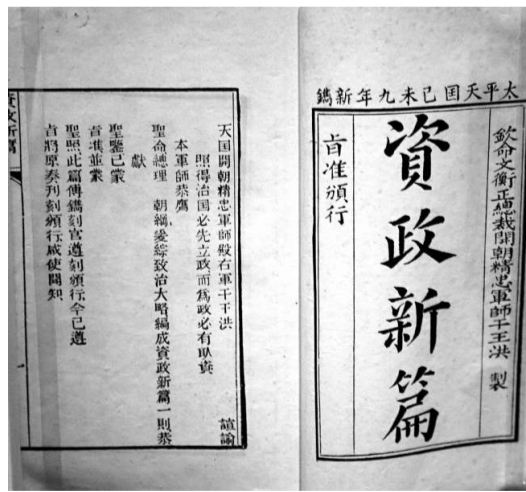 太平天囯己未九年新鐫
欽命文衡正總裁開朝精忠軍師干王洪 製
資政新篇
旨准頒行
天囯開朝精忠軍師殿右軍干王洪 諠諭
照得治囯必先立政而為政必有取資
本軍師恭膺
聖命總理 朝綱爰綜致治大略編成資政新篇一則恭
獻
聖鑒已蒙
旨准並蒙
聖照此篇傳鐫刻官遵刻頒行今已遵
旨將原奏刊刻頒行咸使聞知
資政新篇
一